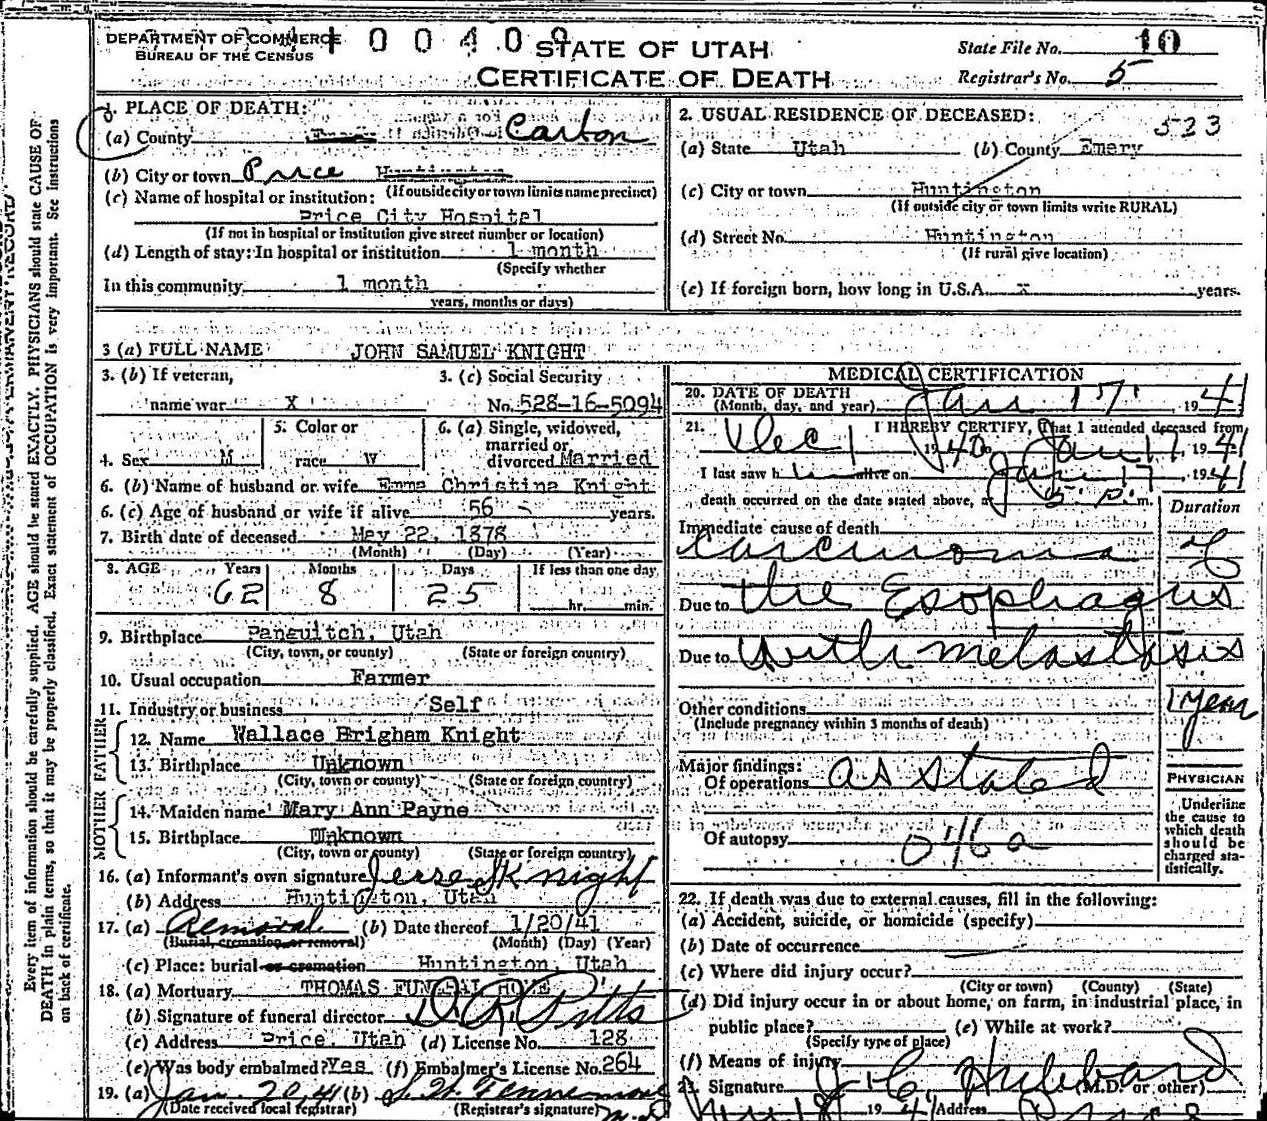 DEPARTMENT OF COMMERCE
BUREAU OF THE CENSUS
0 0 4 0 9
STATE OF UTAH
CERTIFICATE OF DEATH
State File No. 10
Registrar's No. 5
1. PLACE OF DEATH:
(a) County Carbon
(b) City or town Price Huntington
(If outside city or town limits name precinct)
(c) Name of hospital or institution:
Price City Hospital
(If not in hospital or institution give street number or location)
(d) Length of stay: In hospital or institution 1 month
(Specify whether
In this community 1 month
years, months or days)
2. USUAL RESIDENCE OF DECEASED:
523
(a) State Utah (b) County Emery
(c) City or town Huntington
(If outside city or town limits write RURAL)
(d) Street No. Huntington
(If rural give location)
(e) If foreign born, how long in U.S.A. x years.
3 (a) FULL NAME JOHN SAMUEL KNIGHT
3. (b) If veteran, 3. (c) Social Security
name war X No. 528-16-5094
5. Color or 6. (a) Single, widowed,
married or
4. Sex M race W divorced Married
6. (b) Name of husband or wife Emma Christina Knight
6. (c) Age of husband or wife if alive 56 years.
7. Birth date of deceased May 22, 1878
(Month) (Day) (Year)
8. AGE Years Months Days If less than one day
62 8 25 hr. min.
9. Birthplace Panguitch, Utah
(City, town, or county) (State or foreign country)
10. Usual occupation Farmer
11. Industry or business Self
FATHER
12. Name Wallace Brigham Knight
13. Birthplace Unknown
(City, town or county) (State or foreign country)
MOTHER
14. Maiden name Mary Ann Payne
15. Birthplace Unknown
(City, town or county) (State or foreign country)
16. (a) Informant's own signature Jesse Knight
(b) Address Huntington, Utah
17. (a) Removal (b) Date thereof 1/20/41
(Burial, cremation or removal) (Month) (Day) (Year)
(c) Place: burial or cremation Huntington, Utah
18. (a) Mortuary THOMAS FUNERAL HOME
(b) Signature of funeral director D. R. Pitts
(c) Address Price, Utah (d) License No. 128
(e) Was body embalmed? Yes (f) Embalmer's License No. 264
19. (a) Jan. 20, 41 (b)
(Date received local registrar) (Registrar's signature)
MEDICAL CERTIFICATION
20. DATE OF DEATH
(Month, day, and year) Jan 17 1941
21. I HEREBY CERTIFY, That I attended deceased from
Dec 1 1940 Jan 17 1941
I last saw h alive on Jan 17, 1941
death occurred on the date stated above, at 5: p.m.
Duration
Immediate cause of death
Carcinoma of
Due to the Esophagus
Due to with metastasis
1 year
Other conditions
(Include pregnancy within 3 months of death)
Major findings:
Of operations as stated
Of autopsy 046a
PHYSICIAN
Underline
the cause to
which death
should be
charged sta-
tistically.
22. If death was due to external causes, fill in the following:
(a) Accident, suicide, or homicide (specify)
(b) Date of occurrence
(c) Where did injury occur?
(City or town) (County) (State)
(d) Did injury occur in or about home, on farm, in industrial place, in
public place? (e) While at work?
(Specify type of place)
(f) Means of injury
23. Signature J. C. Hubbard (M.D. or other)
18 1941 Address Price
Every item of information should be carefully supplied. AGE should be stated EXACTLY. PHYSICIANS should state CAUSE OF
DEATH in plain terms, so that it may be properly classified. Exact statement of OCCUPATION is very important. See instructions
on back of certificate.